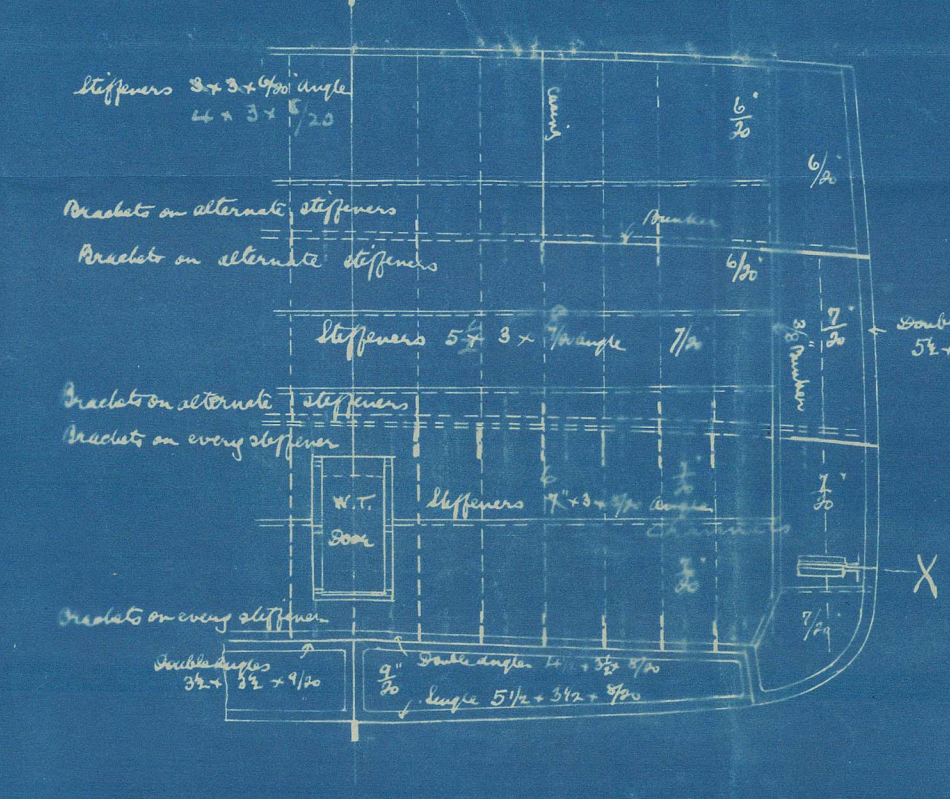 Stiffeners 3 × 3 × 6/20 angle
4 × 3 × 8/20
casing
6/20"
6/20"
Brackets on alternate stiffeners
Bunker
Brackets on alternate stiffeners
6/20"
Stiffeners 5 × 3 × angle
7/20"
3/8" Bunker
7/20"
Doub
5½ ×
Brackets on alternate stiffeners
Brackets on every stiffener
7/20"
W.T.
Door
Stiffeners 7" × 3 × angle
Channels
7/20"
7/20"
X
Brackets on every stiffener
7/20"
Double angles
3½ × 3½ × 9/20
9/20"
Double angles 4½ × 3½ × 8/20
Single 5 1/2 × 3 1/2 × 8/20